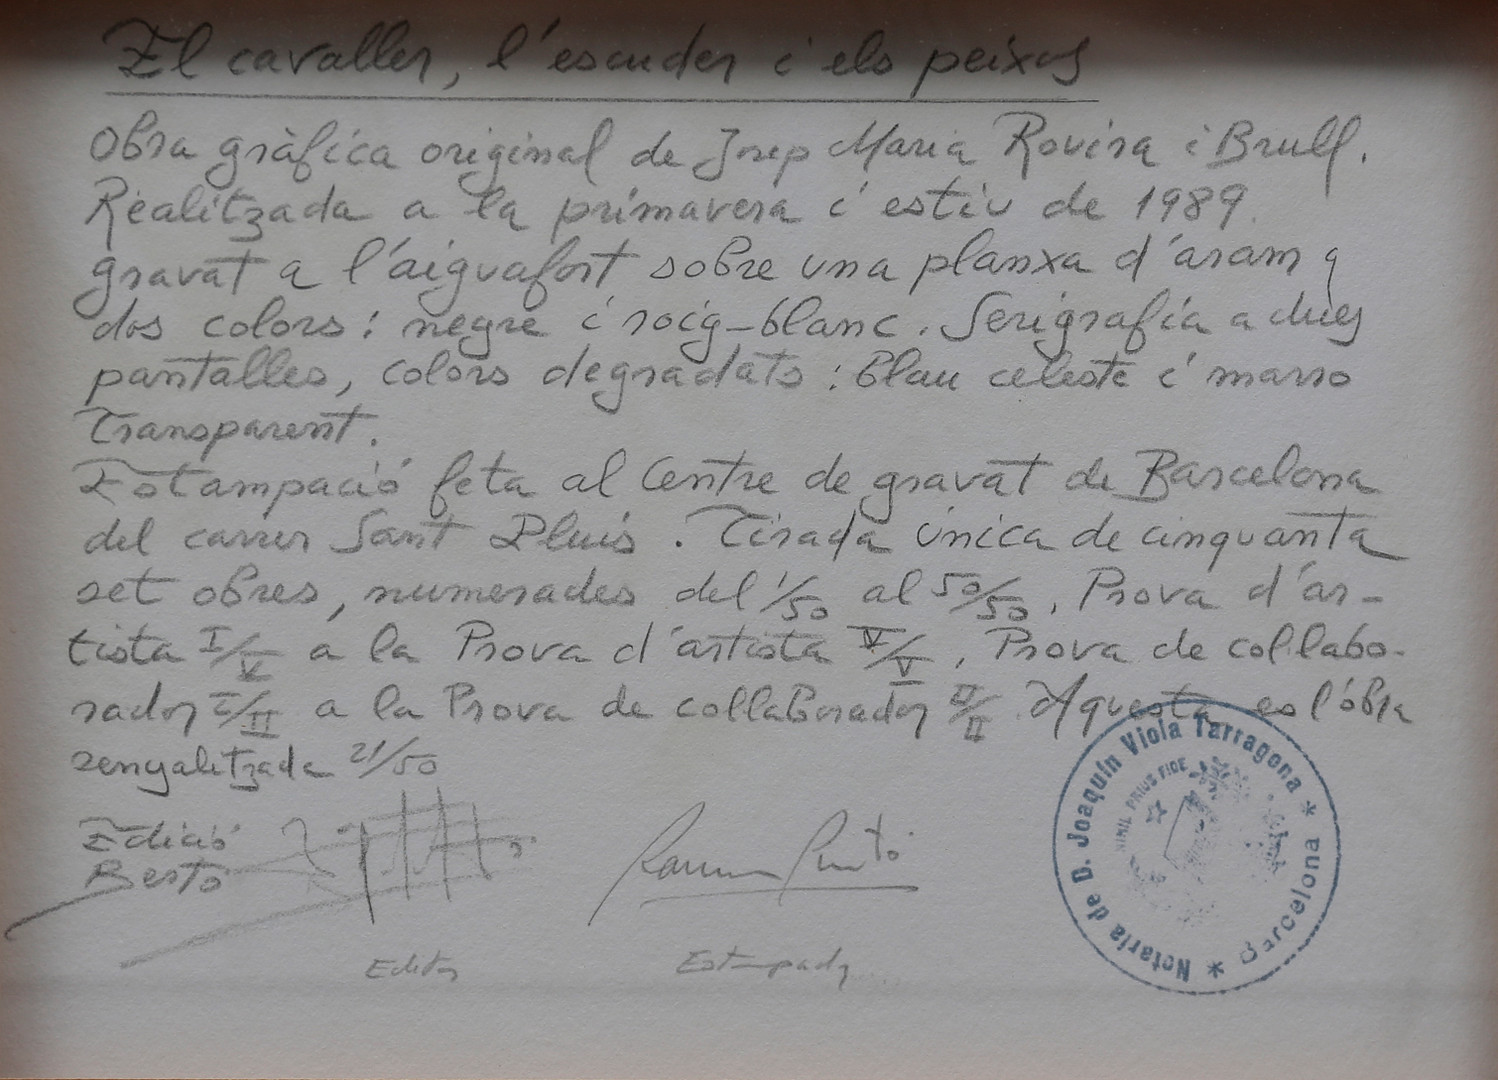 El cavaller, l'escuder i els peixos
Obra gràfica original de Josep Maria Rovira i Brull.
Realitzada a la primavera i estiu de 1989.
gravat a l'aiguafort sobre una planxa d'aram a
dos colors: negre i roig-blanc. Serigrafía a dues
pantalles, colors degradats: Blau celeste i marro
Transparent.
Estampació feta al Centre de gravat de Barcelona
del carrer Sant Lluis. Tirada única de cinquanta
set obres, numerades del 1/50 al 50/50, Prova d'ar-
tista I/V a la Prova d'artista V/V, Prova de col·labo-
rador I/II a la Prova de collaborador II/II. Aquesta es l'óbra
senyalitzada 21/50
Edició
Berto
Editor
Estampador
Notaría de D. Joaquín Viola Tarragona * Barcelona *
NIHIL PRIUS FIDE